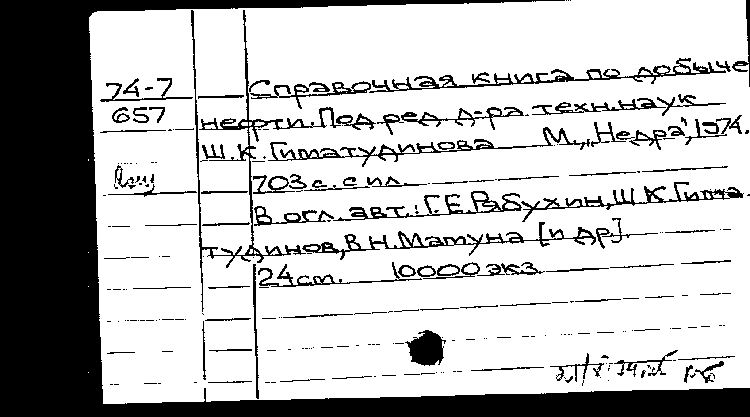 74-7 Справочная книга по добыче
657 нефти. Под ред. д-ра техн. наук
Ш.К. Гиматудинова М., „Недра", 1974.
703 с. с ил.
В огл. авт.: Г.Е. Рябухин, Ш.К. Гима
тудинов, В.Н. Мамуна [и др].
24 cm. 10000 экз